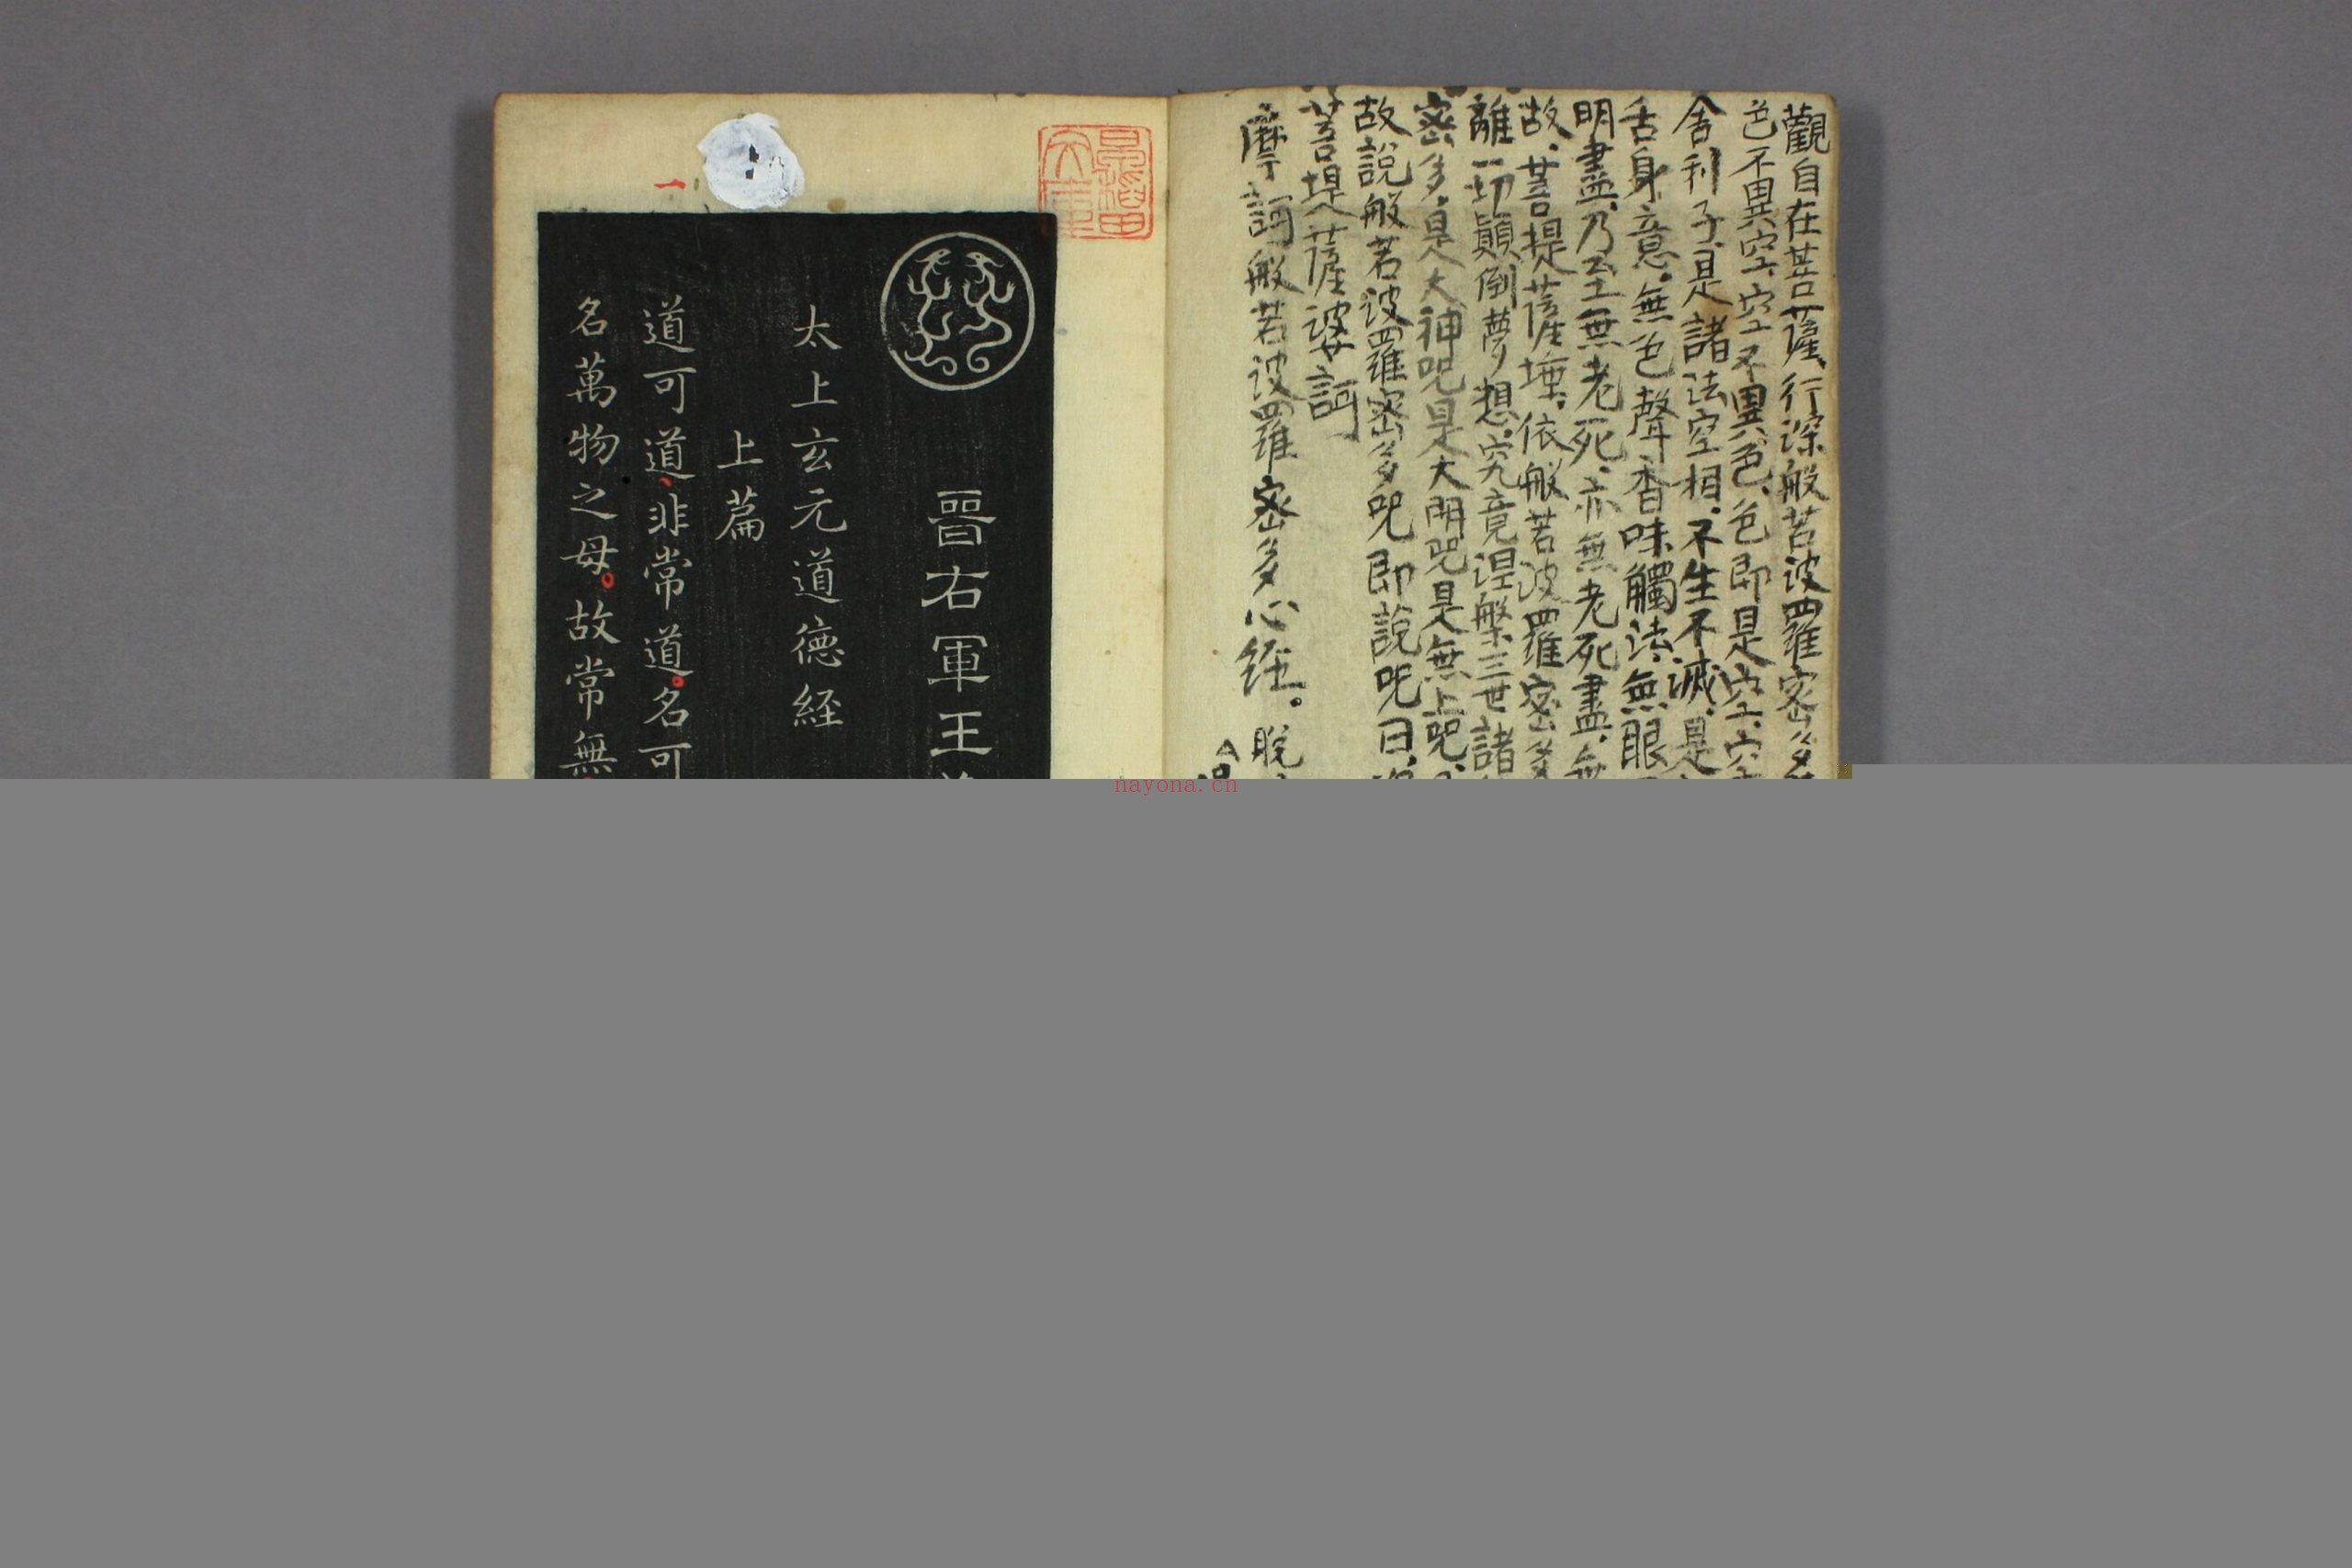 觀自在菩薩行深般若波羅密多
色不異空、空不異色、色即是空、空
舍利子、是諸法空相、不生不滅、是
舌身意。無色聲香味觸法、無眼
明盡、乃至無老死、亦無老死盡、無
故、菩提薩埵、依般若波羅密多
離一切顛倒夢想、究竟涅槃、三世諸
密多、是大神呪是大明呪是無上呪、
故說般若波羅密多呪即說呪曰、
菩提薩婆訶
摩訶般若波羅密多心經。脫
晉右軍王
太上玄元道德経
上篇
道可道、非常道。名可
名萬物之母。故常無
一
nayona.cn